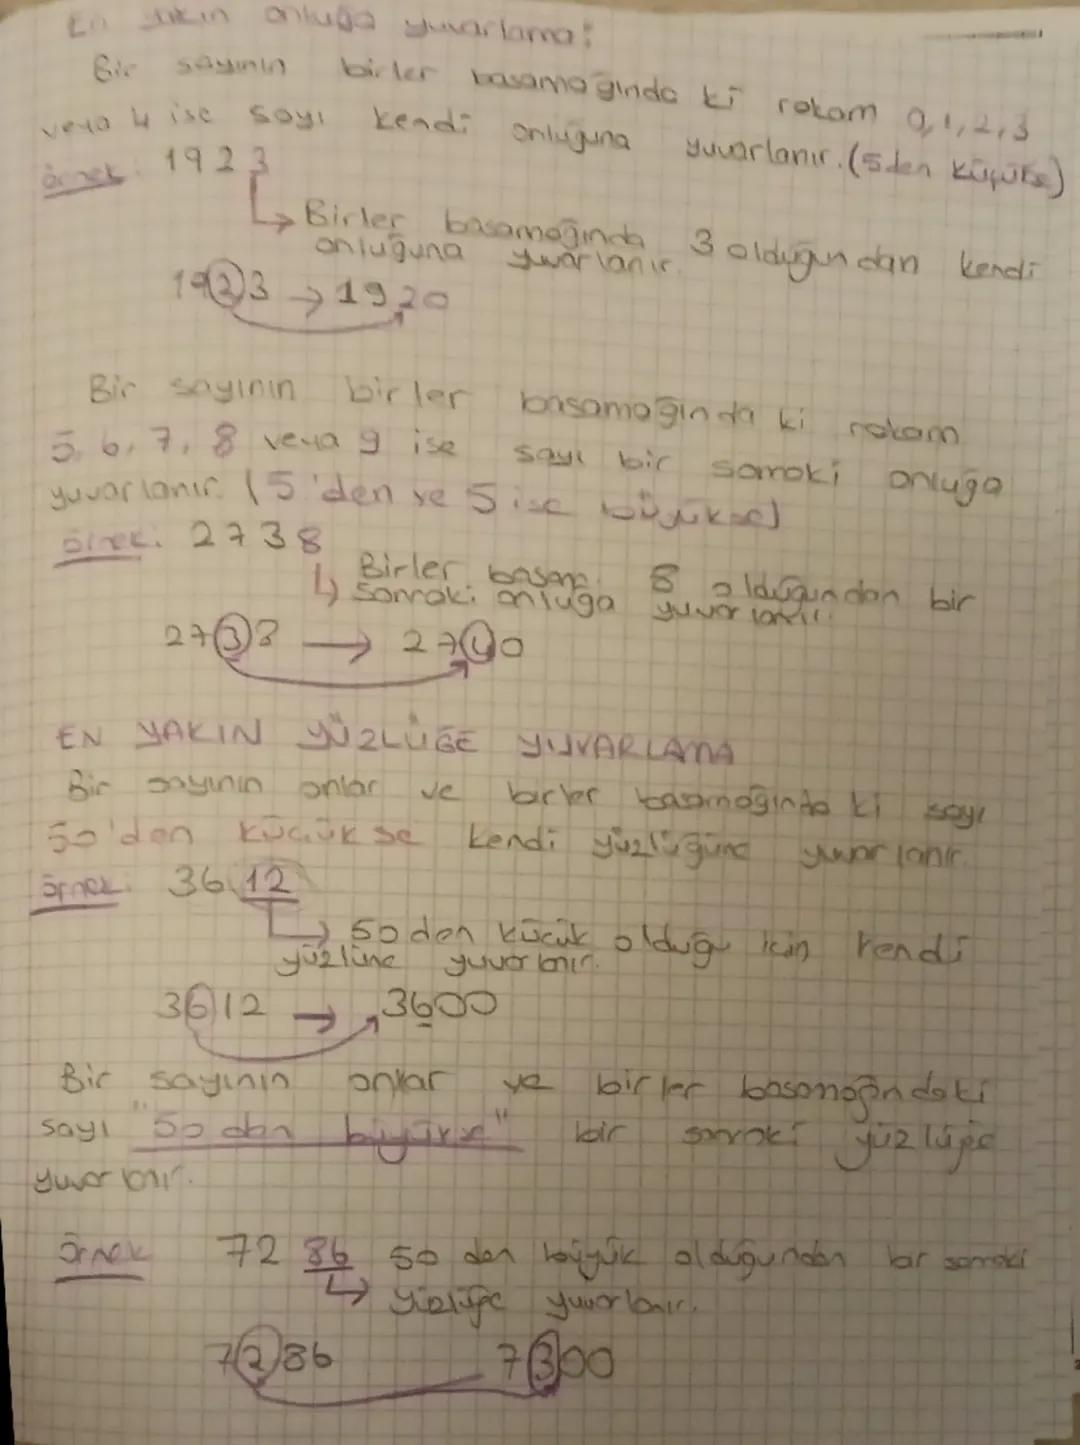 En yakın onluğa yuvarlama:
Bir sayının birler basamağında ki rakam 0,1,2,3
veya 4 ise sayı kendi onluğuna yuvarlanır. (5den küçükse)
örnek: 1923
Birler basamağında 3 olduğundan kendi
onluğuna yuvarlanır.
1923 → 1920
Bir sayının birler basamağında ki rakam
5, 6, 7, 8 veya 9 ise sayı bir sonraki onluğa
yuvarlanır. (5'den ve 5 ise büyükse)
örnek: 2738
Birler basam. 8 olduğundan bir
sonraki onluğa yuvarlanır.
2738 → 2740
EN YAKIN YÜZLÜĞE YUVARLAMA
Bir sayının onlar ve birler basamağında ki sayı
50'den küçükse kendi yüzlüğüne yuvarlanır.
örnek: 3612
50 den küçük olduğu için kendi
yüzlüne yuvarlanır.
3612 → 3600
Bir sayının onlar ve birler basamağındaki
sayı "50 den büyükse" bir sonraki yüzlüğe
yuvarlanır.
Örnek 7286 50 den büyük olduğundan bir sonraki
yüzlüğe yuvarlanır.
7286 7300